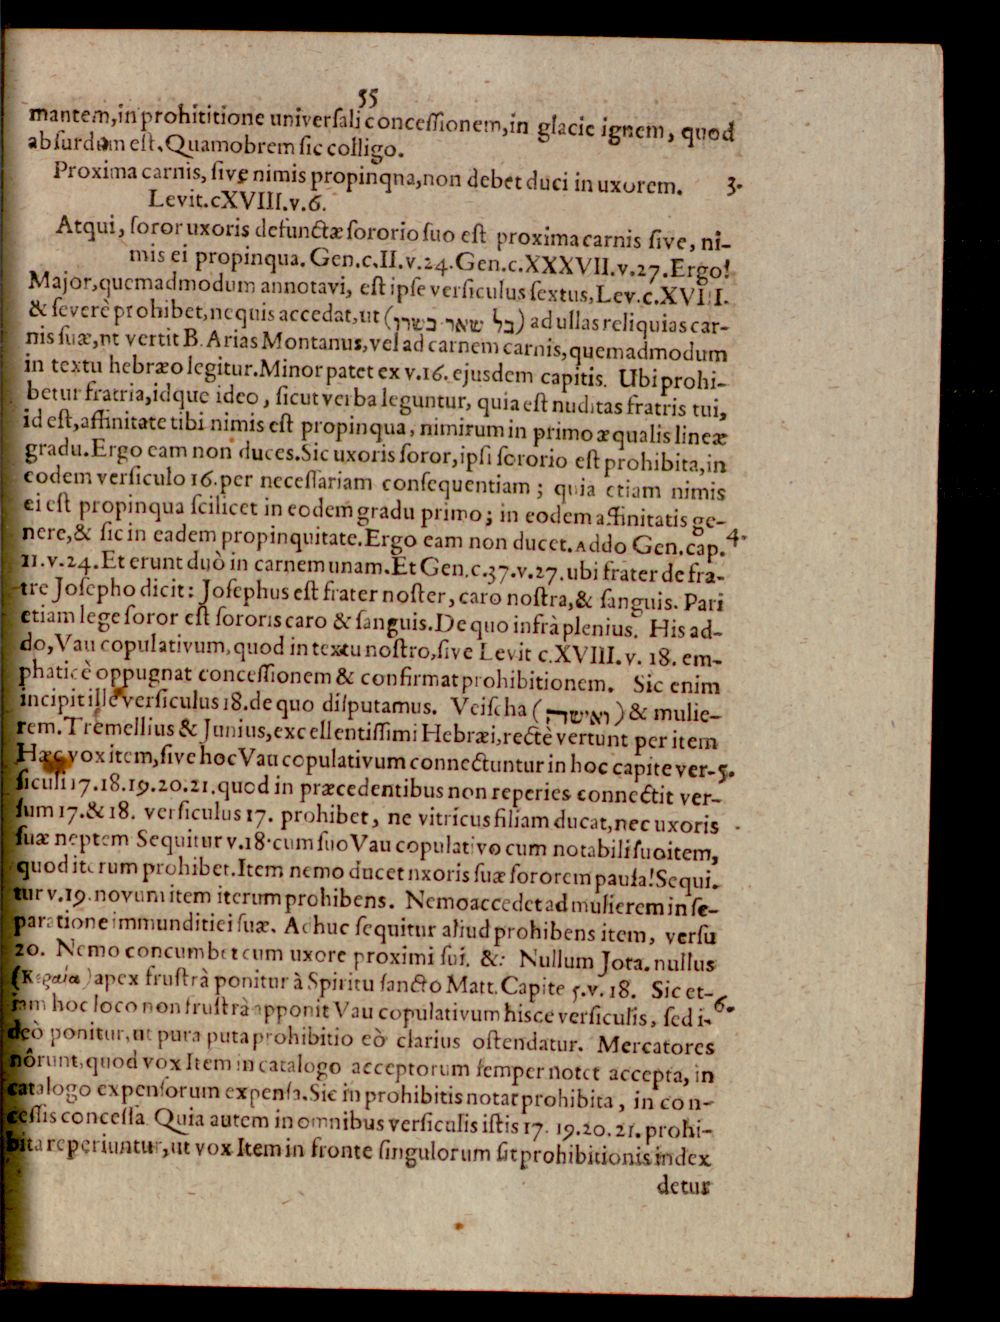 55
mantem, in prohititione universali concessionem, in glacie ignem, quod
absurdum est. Quamobrem sic colligo.
Proxima carnis, sive nimis propinqna, non debet duci in uxorem. 3.
Levit. c XVIII. v. 6.
Atqui, soror uxoris defunctæ sororio suo est proxima carnis sive, ni-
mis ei propinqua. Gen. c. II. v. 24. Gen. c. XXXVII. v. 27. Ergo!
Major, quemadmodum annotavi, est ipse versiculus sextus, Lev. c. XVIII.
& severè prohibet, ne quis accedat, ut (כל שאר בשרו) ad ullas reliquias car-
nis suæ, nt vertit B. Arias Montanus, vel ad carnem carnis, quemadmodum
in textu hebræo legitur. Minor patet ex v. 16. ejusdem capitis. Ubi prohi-
betur fratria, idque ideo, sicut verba leguntur, quia est nuditas fratris tui,
id est, affinitate tibi nimis est propinqua, nimirum in primo æqualis lineæ
gradu. Ergo eam non duces. Sic uxoris soror, ipsi sororio est prohibita, in
eodem versiculo 16. per necessariam consequentiam; quia etiam nimis
ei est propinqua scilicet in eodem gradu primo; in eodem affinitatis ge-
nere, & sic in eadem propinquitate. Ergo eam non ducet. Addo Gen. cap. 4.
II. v. 24. Et erunt duò in carnem unam. Et Gen. c. 37. v. 27. ubi frater de fra-
tre Josepho dicit: Josephus est frater noster, caro nostra, & sanguis. Pari
etiam lege soror est sororis caro & sanguis. De quo infrà plenius. His ad-
do, Vau copulativum, quod in textu nostro, sive Levit c. XVIII. v. 18. em-
phaticè oppugnat concessionem & confirmat prohibitionem. Sic enim
incipit ille versiculus 18. de quo disputamus. Veischa (ואישה) & mulie-
rem. Tremellius & Junius, excellentissimi Hebræi, rectè vertunt per item
Hæc vox item, sive hoc Vau copulativum connectuntur in hoc capite ver- 5.
siculi 17. 18. 19. 20. 21. quod in præcedentibus non reperies connectit ver-
sum 17. & 18. versiculus 17. prohibet, ne vitricus filiam ducat, nec uxoris
suæ neptem Sequitur v. 18. cum suo Vau copulativo cum notabili suo item,
quod iterum prohibet. Item nemo ducet nxoris suæ sororem pausa! Sequi.
tur v. 19. novum item iterum prohibens. Nemo accedet ad mulierem in se-
paratione immunditiei suæ. Adhuc sequitur aliud prohibens item, versu
20. Nemo concumbet cum uxore proximi sui. &: Nullum Jota. nullus
(Κεραία) apex frustrà ponitur à Spiritu sancto Matt. Capite 5. v. 18. Sic et-
iam hoc loco non frustrà apponit Vau copulativum hisce versiculis, sed i- 6.
deò ponitur, ut pura puta prohibitio eò clarius ostendatur. Mercatores
nôrunt, quod vox Item in catalogo acceptorum semper notet accepta, in
catalogo expensorum expensa. Sic in prohibitis notat prohibita, in con-
cessis concessa Quia autem in omnibus versiculis istis 17. 19. 20. 21. prohi-
bita reperiuntur, ut vox Item in fronte singulorum sit prohibitionis index
detur